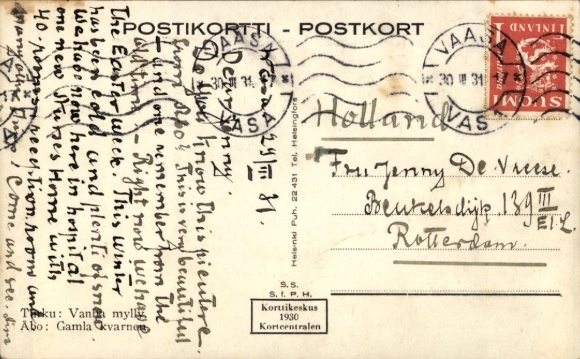 POSTIKORTTI - POSTKORT
SUOMI
FINLAND
1
VAASA
30 III 31
VASA
VAASA
30 III 31
VASA
Vasa 29/III 31.
Dear Jenny.
Do you know this picture
from Åbo? This is very beautiful
and one remember from the
old time. - Right now we have
The Easter week. This winter
has been cold and plenti of snow.
We have now here in hospital
one new Nurses Home with
40 rooms, reception room and
many other. Come and see.
Holland
Fru Jenny De Vriese.
Beukelsdijk 139 III
E.I.L.
Rotterdam.
Helsinki Puh. 22 431 Tel. Helsingfors
S. S.
S. f. P. H.
Korttikeskus
1930
Kortcentralen
Turku: Vanha mylly
Åbo: Gamla kvarnen